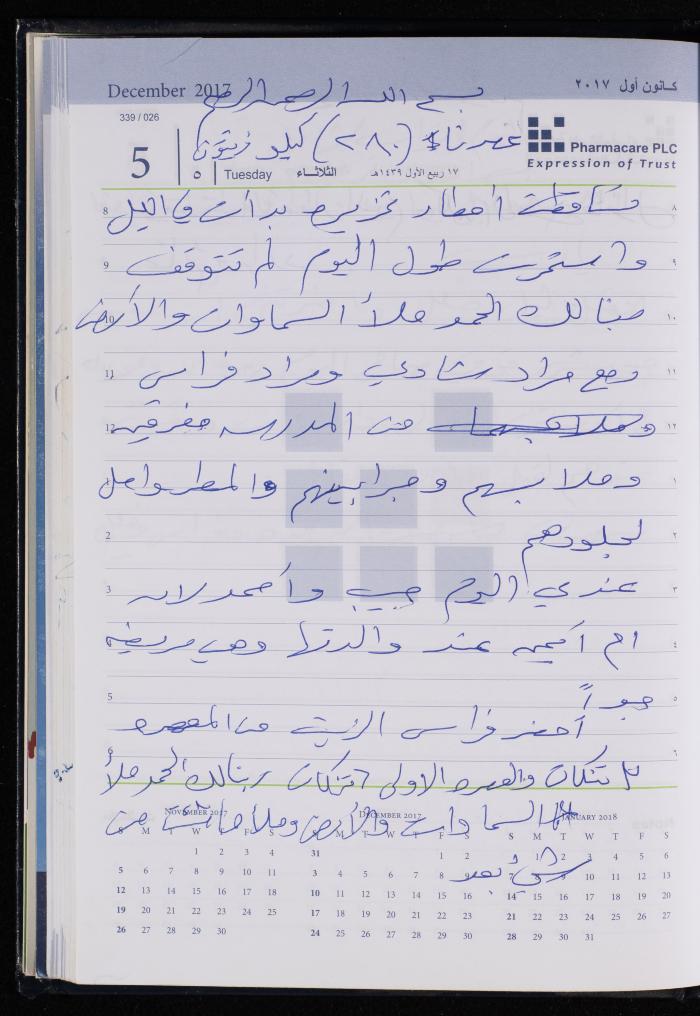 December 2017
كانون أول ٢٠١٧
بسم الله الرحمن الرحيم
339 / 026
عصرناه (٢٨٠) كيلو زيتون
Pharmacare PLC
Expression of Trust
5
٥
Tuesday
الثلاثاء
١٧ ربيع الأول ١٤٣٩هـ
8 تساقطت أمطار غزيره بدأت في الليل ٨
9 واستمرت طول اليوم لم تتوقف ٩
10 ربنا لك الحمد ملأ السماوات والأرض ١٠
11 رجع مراد شادي ومراد فراس ١١
12 وملابسهما من المدرسه مغرقين ١٢
1 وملابسهم وجرابينهم والمطر واصل ١
2 لجلودهم ٢
3 عندي اليوم حبيب وأحمد لان ٣
4 ام أحمد عند والدتها وهي مريضه ٤
5 جداً ٥
أحضر فراس الزيت من المعصره
6 ٦
٣ تنكات والمره الاولى ٦ تنكات ربنا لك الحمد ملأ
السماوات والأرض وملأ ما شئت من
شيءٍ بعد
NOVEMBER 2017
S M T W T F S
1 2 3 4
5 6 7 8 9 10 11
12 13 14 15 16 17 18
19 20 21 22 23 24 25
26 27 28 29 30
DECEMBER 2017
S M T W T F S
31 1 2
3 4 5 6 7 8 9
10 11 12 13 14 15 16
17 18 19 20 21 22 23
24 25 26 27 28 29 30
JANUARY 2018
S M T W T F S
1 2 3 4 5 6
7 8 9 10 11 12 13
14 15 16 17 18 19 20
21 22 23 24 25 26 27
28 29 30 31